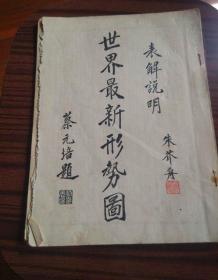 表解說明
朱芥舟
世界最新形勢圖
蔡元培題